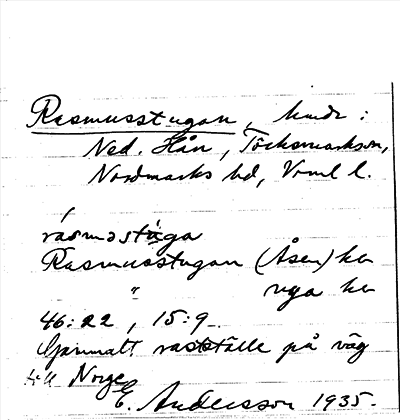 Rasmusstugan, hmdr:
Ned. Hån, Töcksmarks sn,
Nordmarks hd, Vrml. l.
rasməstúga
Rasmusstugan (Åsen) ka
" nya ka
46:22, 15:9
Gammalt rastställe på väg
till Norge
E. Andersson 1935.